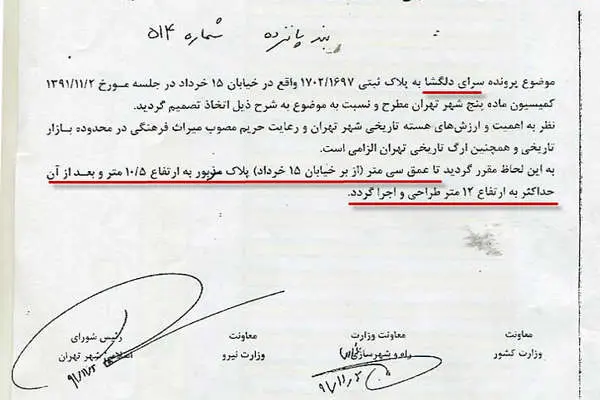 بند پانزده شماره ۵۱۴
موضوع پرونده سرای دلگشا به پلاک ثبتی ۱۷۰۲/۱۶۹۷ واقع در خیابان ۱۵ خرداد در جلسه مورخ ۱۳۹۱/۱۱/۲
کمیسیون ماده پنج شهر تهران مطرح و نسبت به موضوع به شرح ذیل اتخاذ تصمیم گردید.
نظر به اهمیت و ارزش‌های هسته تاریخی شهر تهران و رعایت حریم مصوب میراث فرهنگی در محدوده بازار
تاریخی و همچنین ارگ تاریخی تهران الزامی است.
به این لحاظ مقرر گردید تا عمق سی متر (از بر خیابان ۱۵ خرداد) پلاک مزبور به ارتفاع ۱۰/۵ متر و بعد از آن
حداکثر به ارتفاع ۱۲ متر طراحی و اجرا گردد.
معاونت معاونت وزارت معاونت رئیس شورای
وزارت کشور راه و شهرسازی وزارت نیرو اسلامی شهر تهران
۹۱/۱۱/۲ ۹۱/۱۱/۲